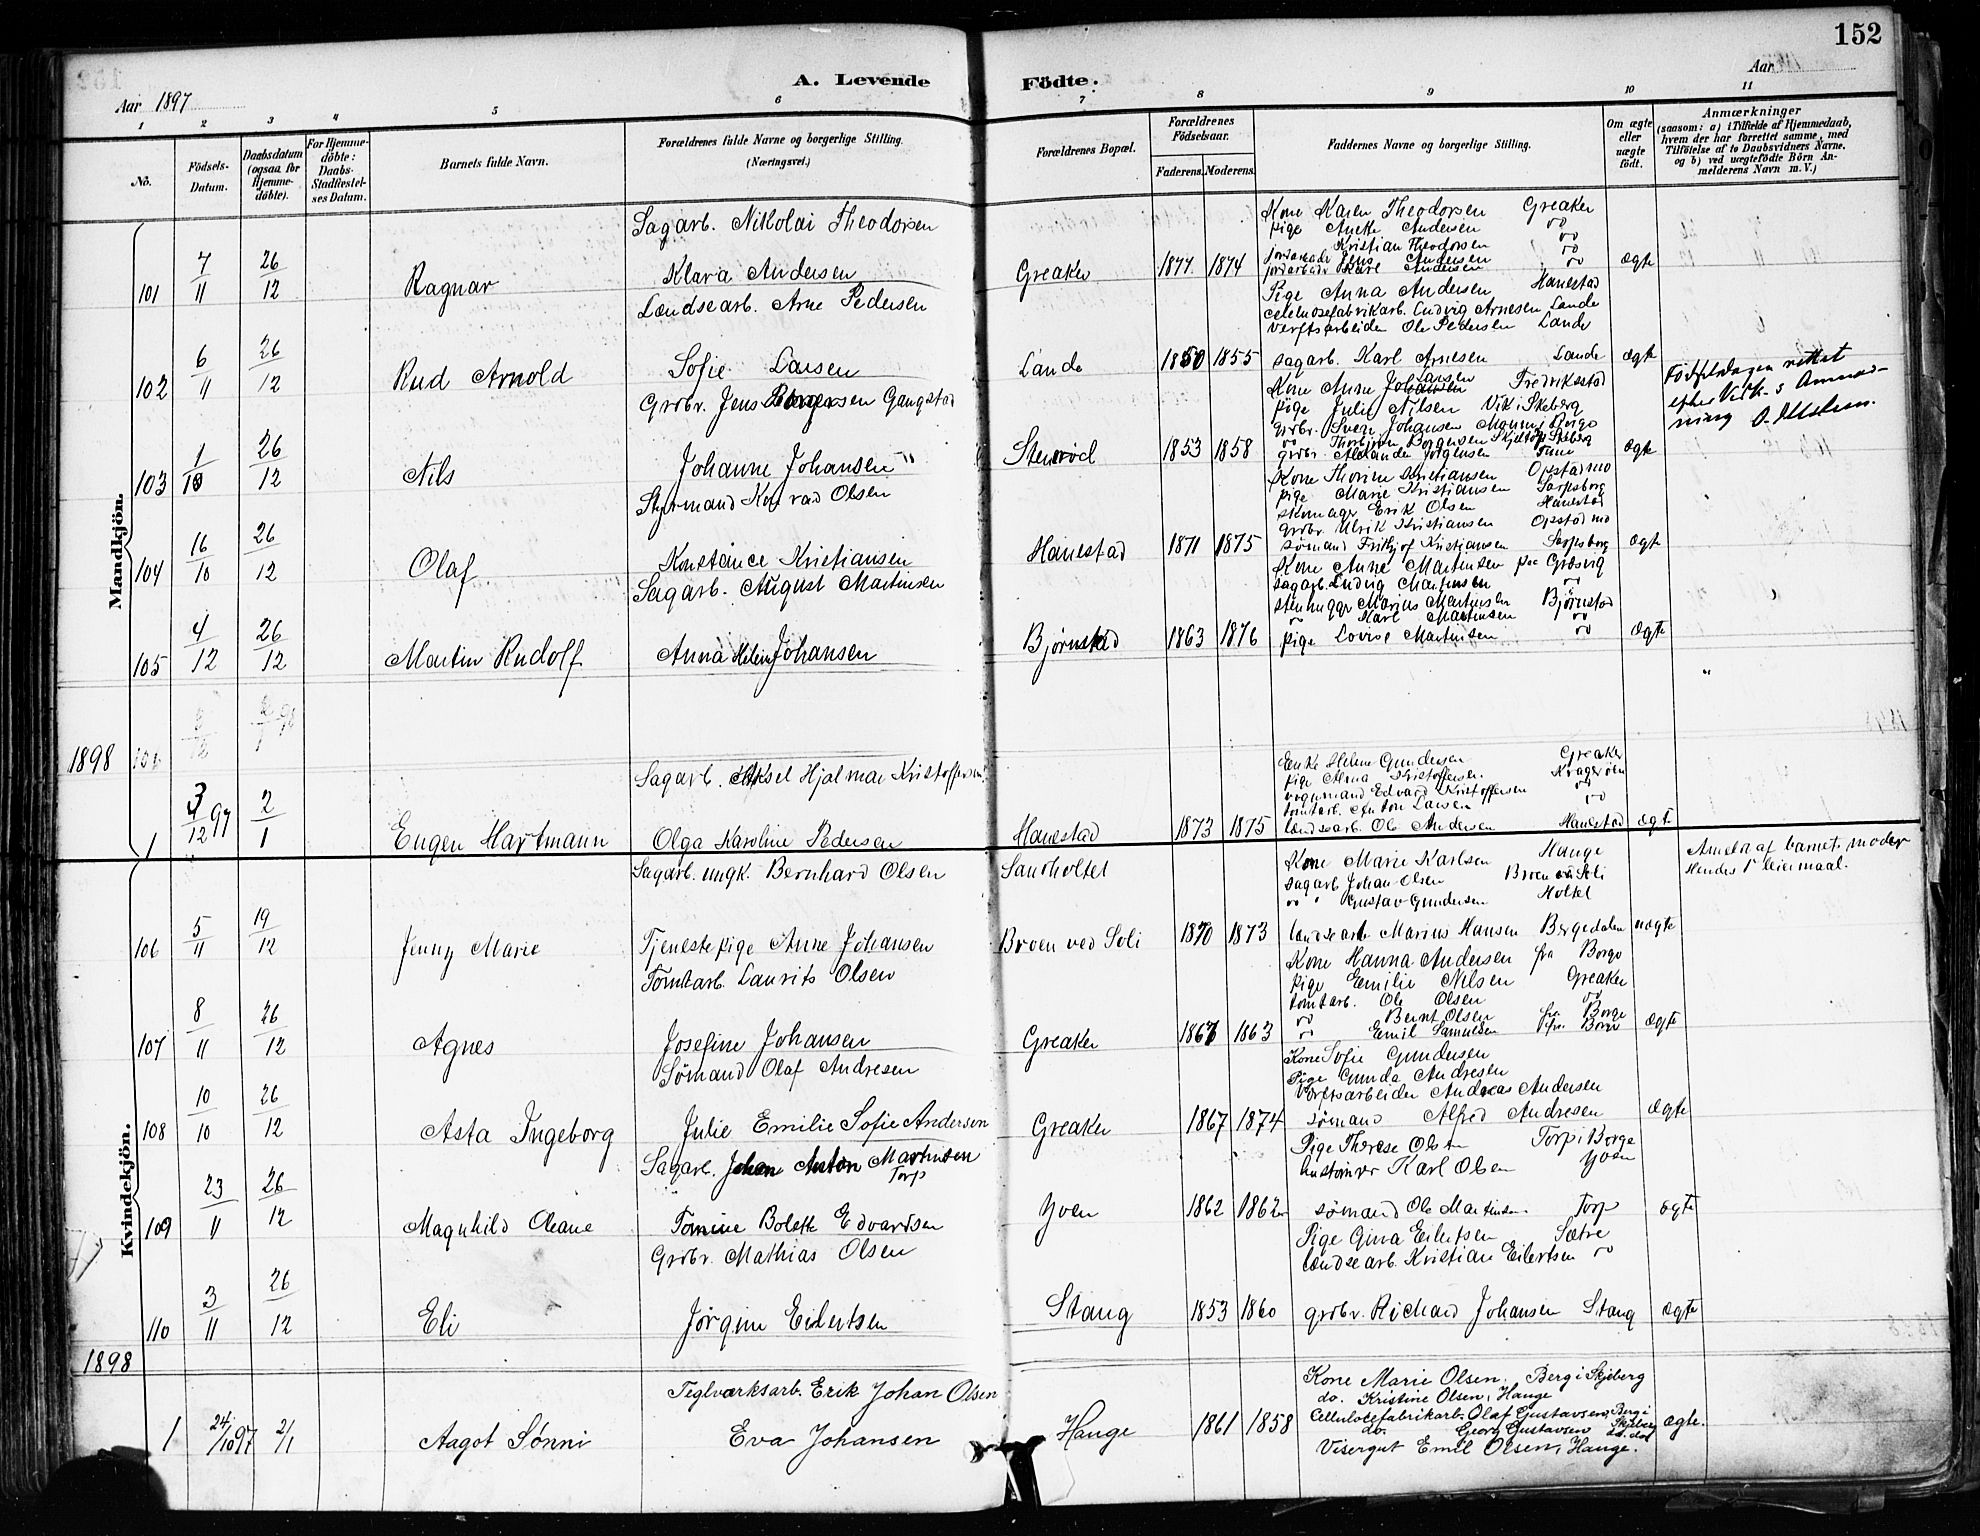 152
A. Levende Födte.
Aar 1897
Aar
1 2 3 4 5 6 7 8 9 10 11
No.
Födsels-Datum.
Daabsdatum (ogsaa for Hjemmedöbte).
For Hjemmedöbte: Daabs-Stadfæstelses Datum.
Barnets fulde Navn.
Forældrenes fulde Navne og borgerlige Stilling. (Næringsvei.)
Forældrenes Bopæl.
Forældrenes Födselsaar.
Faderens. Moderens.
Faddernes Navne og borgerlige Stilling.
Om ægte eller uægte født.
Anmærkninger (saasom: a) i Tilfælde af Hjemmedaab, hvem der har forrettet samme, med Tilføielse af to Daabsvidners Navne, og b) ved uægtefödte Börn Anmelderens Navn m. V.)
Mandkjön.
101 7/11 26/12 Ragnar
Sagarb. Nikolai Theodorsen
Klara Andersen
Greaker 1877 1874
Kone Karen Theodorsen Greaker
pige Anette Andersen do
Kristian Theodorsen do
jordarbeider Karl Andersen do
ægte
102 6/11 26/12 Rud Arnold
Lændsearb. Arne Pedersen
Sofie Larsen
Lande 1850 1855
Pige Anna Andersen Hanestad
Cellulosefabrikarb. Ludvig Arnesen Lande
Verftsarbeider Ole Pedersen Lande
sagarb. Karl Arnesen Lande
ægte
Fødselsdagen rettet
103 1/10 26/12 Nils
Grdbr. Jens Borgersen Gangstad
Johanne Johansen
Stenrød 1853 1858
Kone Anne Johansen Larsen Fredriksstad
pige Julie Nilsen Vik i Skeberg
Grdbr. Sven Johansen
do Thorbjørn Borgersen
grdbr. Alexander Jørgensen Tune
ægte
104 16/10 26/12 Olaf
Styrmand Konrad Olsen
Konstance Kristiansen
Hanestad 1871 1875
Kone Thorine Kristiansen Opstadmo
pige Marie Kristiansen Sarpsborg
skomager Erik Olsen Hanestad
grdbr. Ulrik Kristiansen Opstadmo
sømand Fritjof Kristiansen Sarpsborg
ægte
105 4/12 26/12 Martin Rudolf
Sagarb. August Martinsen
Anna Helene Johansen
Bjørnstad 1863 1876
Kone Anne Martinsen
sagarb. Ludvig Martinsen do
stenhugger Marius Martinsen Bjørnstad
do Karl Martinsen do
pige Lovise Martinsen do
ægte
1898
1 3/12 97 2/1 Eugen Hartmann
Sagarb. Aksel Hjalmar Kristoffersen
Olga Karoline Pedersen
Hanestad 1873 1875
Enke Helene Gundersen Greaker
pige Alma Kristoffersen Kragerøen
vognmand Edvard Kristoffersen do
tomtarb. Anton Larsen do
lændsearb. Ole Andersen Hanestad
ægte
Kvindekjön.
106 5/11 19/12 Jenny Marie
Sagarb. ungk. Bernhard Olsen
Tjenestepige Anne Johansen
Sandholtet
Broen ved Soli 1870 1873
Kone Marie Karlsen Hauge
sagarb. Johan Olsen Broen v. Soli
do Gustav Gundersen Holtet
lændsearb Marius Hansen Bergedalen
uægte
Anmeldt af barnets moder
Hendes 1ste leiermaal.
107 8/11 26/12 Agnes
Tomtarb. Laurits Olsen
Josefine Johansen
Greaker 1867 1863
Kone Hanna Andersen fra Borge
pige Emilie Nilsen Greaker
tomtarb. Ole Olsen do
do Bernt Olsen fra Borge
do Emil Samuelsen fra Borge
ægte
108 10/10 26/12 Asta Ingeborg
Sømand Olaf Andresen
Julie Emilie Sofie Andersen
Greaker 1867 1874
Kone Sofie Gundersen
Pige Gunda Andresen
Verftsarbeider Andreas Andersen
sømand Alfred Andresen
ægte
109 23/11 26/12 Magnhild Oleane
Sagarb. Johan Anton Martinsen Torp
Tomine Bolette Edvardsen
Yven 1862 1862
Pige Therese Olsen Torp i Borge
hustømrer Karl Olsen Yven
sømand Ole Martinsen Torp
ægte
110 3/11 26/12 Eli
Grdbr. Mathias Olsen
Jørgine Eilertsen
Stang 1853 1860
Pige Gina Eilertsen Sætre
lændsearb. Kristian Eilertsen do
grdbr. Richard Johansen Stang
ægte
1898
1 24/10 97 2/1 Aagot Sønni
Teglværksarb. Erik Johan Olsen
Eva Johansen
Hauge 1861 1858
Kone Marie Olsen, Berg i Skjeberg
do. Kristine Olsen, Hauge
Cellulosefabrikarb. Olaf Gustavsen, Berg i Skjeberg
do. Georg Gustavsen do. do.
Visergut Emil Olsen, Hauge.
ægte.